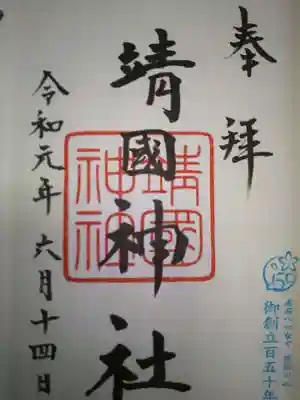 奉拝
靖國神社
靖國
神社
令和元年六月十四日
150
御創立百五十年